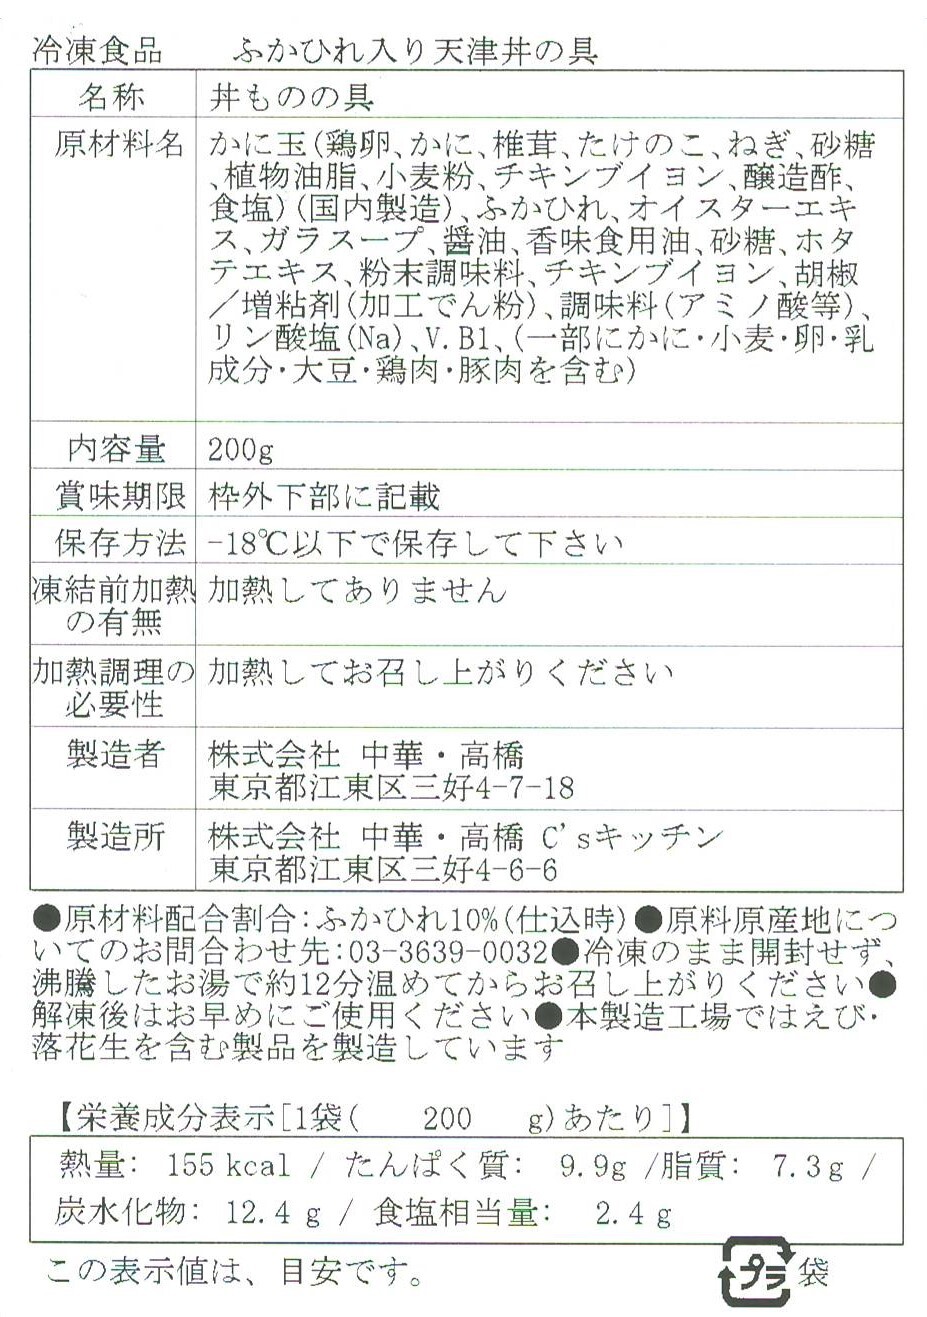 冷凍食品　ふかひれ入り天津丼の具
名称　丼ものの具
原材料名　かに玉(鶏卵、かに、椎茸、たけのこ、ねぎ、砂糖
、植物油脂、小麦粉、チキンブイヨン、醸造酢、
食塩)(国内製造)、ふかひれ、オイスターエキ
ス、ガラスープ、醤油、香味食用油、砂糖、ホタ
テエキス、粉末調味料、チキンブイヨン、胡椒
／増粘剤(加工でん粉)、調味料(アミノ酸等)、
リン酸塩(Na)、V.B1、(一部にかに・小麦・卵・乳
成分・大豆・鶏肉・豚肉を含む)
内容量　200g
賞味期限　枠外下部に記載
保存方法　-18℃以下で保存して下さい
凍結前加熱　加熱してありません
の有無
加熱調理の　加熱してお召し上がりください
必要性
製造者　株式会社 中華・高橋
東京都江東区三好4-7-18
製造所　株式会社 中華・高橋 C'sキッチン
東京都江東区三好4-6-6
●原材料配合割合:ふかひれ10%(仕込時)●原料原産地につ
いてのお問合わせ先:03-3639-0032●冷凍のまま開封せず、
沸騰したお湯で約12分温めてからお召し上がりください●
解凍後はお早めにご使用ください●本製造工場ではえび・
落花生を含む製品を製造しています
【栄養成分表示[1袋(　200　g)あたり]】
熱量: 155 kcal / たんぱく質: 9.9g /脂質: 7.3g /
炭水化物: 12.4 g / 食塩相当量: 2.4 g
この表示値は、目安です。
プラ 袋